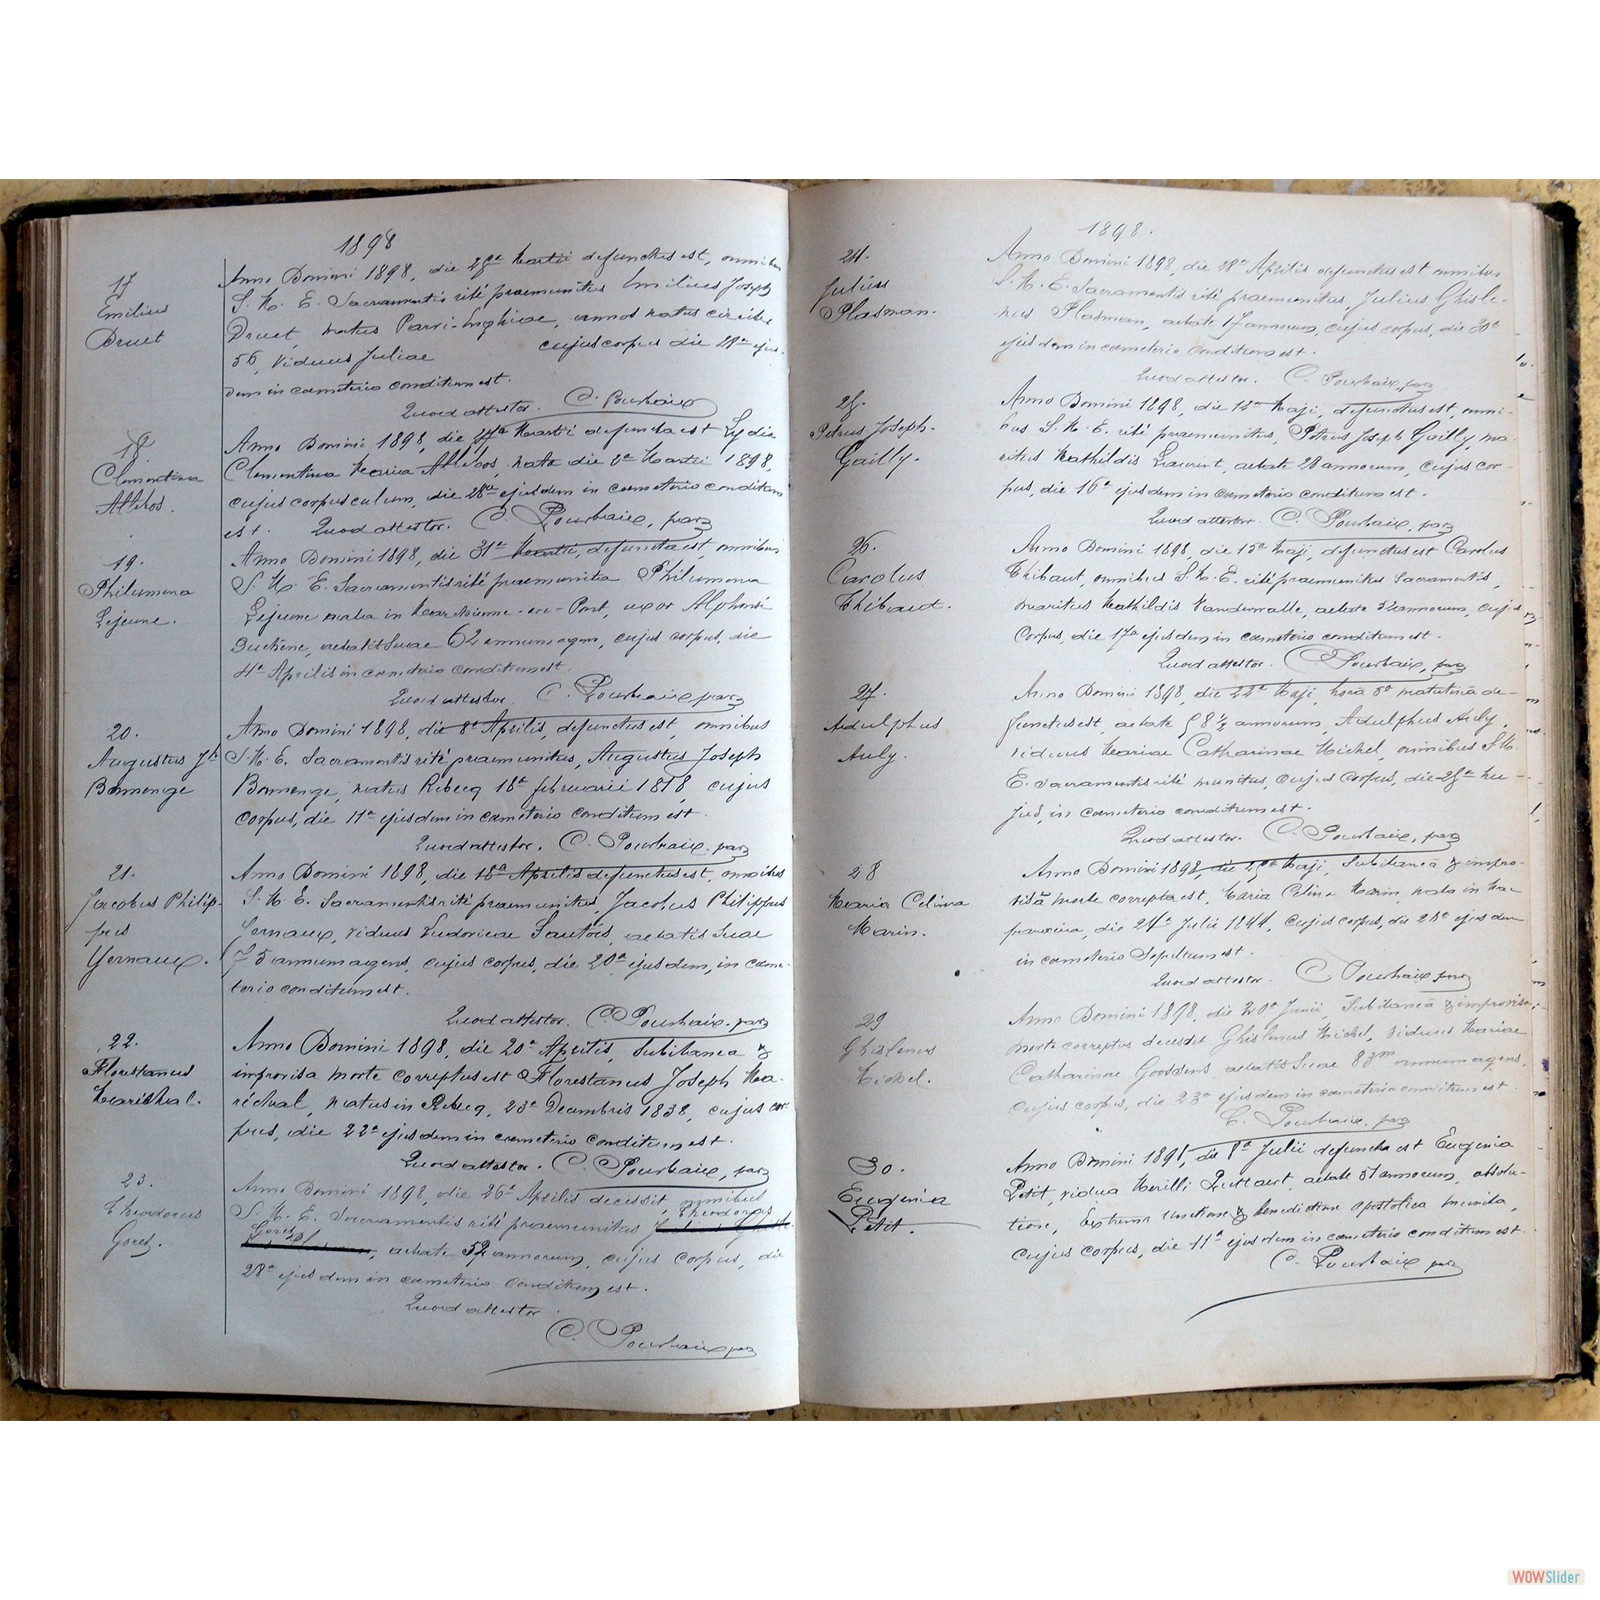 1898
17
Emilius
Druet
Anno Domini 1898, die 25a Martii defunctus est, omnibus
S. M. E. Sacramentis rité praemunitus Emilius Joseph
Druet, natus Parvi-Enghiae, annos natus circiter
56, viduus Juliae cujus corpus die 28a ejus-
dem in caemeterio conditum est.
Quod attestor. C. Pourbaix
18
Clementina
Attebos.
Anno Domini 1898, die 27a Martii defuncta est Lydia
Clementina Maria Attebos, nata die Martii 1898,
cujus corpusculum, die 28a ejusdem in caemeterio conditum
est. Quod attestor. C. Pourbaix, par
19.
Philumena
Lejeune.
Anno Domini 1898, die 31a Martii, defuncta est omnibus
S. M. E. Sacramentis rité praemunita Philumena
Lejeune nata in Marchienne-au-Pont, uxor Alphonsi
Duchêne, aetatis suae 62 annum agens, cujus corpus, die
4a Aprilis in caemeterio conditum est.
Quod attestor. C. Pourbaix par
20.
Augustus Jh
Bomenge
Anno Domini 1898, die 8a Aprilis, defunctus est, omnibus
S. M. E. Sacramentis rité praemunitus, Augustus Joseph
Bomenge, natus Rebecq 18a februarii 1818, cujus
corpus, die 11a ejusdem in caemeterio conditum est.
Quod attestor. C. Pourbaix, par
21.
Jacobus Philip-
pus
Gernaux.
Anno Domini 1898, die 18a Aprilis defunctus est, omnibus
S. M. E. Sacramentis rité praemunitus, Jacobus Philippus
Gernaux, viduus Ludovicae Sautois, aetatis suae
75 annum agens, cujus corpus, die 20a ejusdem, in caeme-
terio conditum est.
Quod attestor. C. Pourbaix. par
22.
Florestanus
Maréchal.
Anno Domini 1898, die 20a Aprilis, Subitanea &
improvisa morte correptus est Florestanus Joseph Ma-
réchal, natus in Rebecq, 23a Decembris 1838, cujus cor-
pus, die 22a ejusdem in caemeterio conditum est.
Quod attestor. C. Pourbaix, par
23.
Theodorus
Goret.
Anno Domini 1898, die 26a Aprilis decessit, omnibus
S. M. E. Sacramentis rité praemunitus Theodorus
Goret, aetate 52 annorum, cujus corpus, die
28a ejusdem in caemeterio conditum est.
Quod attestor.
C. Pourbaix par
1898.
24.
Julius
Plasman.
Anno Domini 1898, die 28a Aprilis defunctus est omnibus
S. M. E. Sacramentis rité praemunitus, Julius Ghisle-
nus Plasman, aetate 17 annorum, cujus corpus, die 30a
ejusdem in caemeterio conditum est.
Quod attestor. C. Pourbaix, par
25.
Petrus Joseph.
Gailly.
Anno Domini 1898, die Maji, defunctus est, omni-
bus S. M. E. rité praemunitus, Petrus Joseph Gailly ma-
ritus Mathildis Laurent, aetate 28 annorum, cujus cor-
pus, die 16a ejusdem in caemeterio conditum est.
Quod attestor. C. Pourbaix, par
26.
Carolus
Thibaut.
Anno Domini 1898, die 15a Maji, defunctus est Carolus
Thibaut, omnibus S. M. E. rité praemunitus Sacramentis,
maritus Mathildis Vandewalle, aetate 52 annorum, cujus
Corpus, die 17a ejusdem in caemeterio conditum est.
Quod attestor. C. Pourbaix, par
27.
Adulphus
Auly.
Anno Domini 1898, die 22a Maji, horâ 5a matutinâ de-
functus est, aetate 58 1/2 annorum, Adulphus Auly,
viduus Mariae Catharinae Michel, omnibus S. M.
E. Sacramentis rité munitus, cujus corpus, die 25a hu-
jus, in caemeterio conditum est.
Quod attestor. C. Pourbaix, par
28
Maria Celina
Marin.
Anno Domini 1898, die 25a Maji, Subitaneâ & impro-
visâ morte correpta est, Maria Celina Marin, nata in
die 24a Julii 1844, cujus corpus, die 28a ejusdem
in caemeterio Sepultum est.
Quod attestor. C. Pourbaix par
29
Ghislenus
Michel.
Anno Domini 1898, die 20a Junii, Subitaneâ & improvisa
morte correptus decessit Ghislenus Michel, viduus Mariae
Catharinae Goossens, aetatis suae 83um annum agens,
cujus corpus, die 23a ejusdem in caemeterio conditum est.
C. Pourbaix, par
30.
Eugenia
Petit.
Anno Domini 1898, die 8a Julii defuncta est Eugenia
Petit, vidua Mirilli Quittaert aetate 51 annorum, absolu-
tione, Extrema unctione & benedictione apostolica munita,
cujus corpus, die 11a ejusdem in caemeterio conditum est.
C. Pourbaix par
WOWSlider